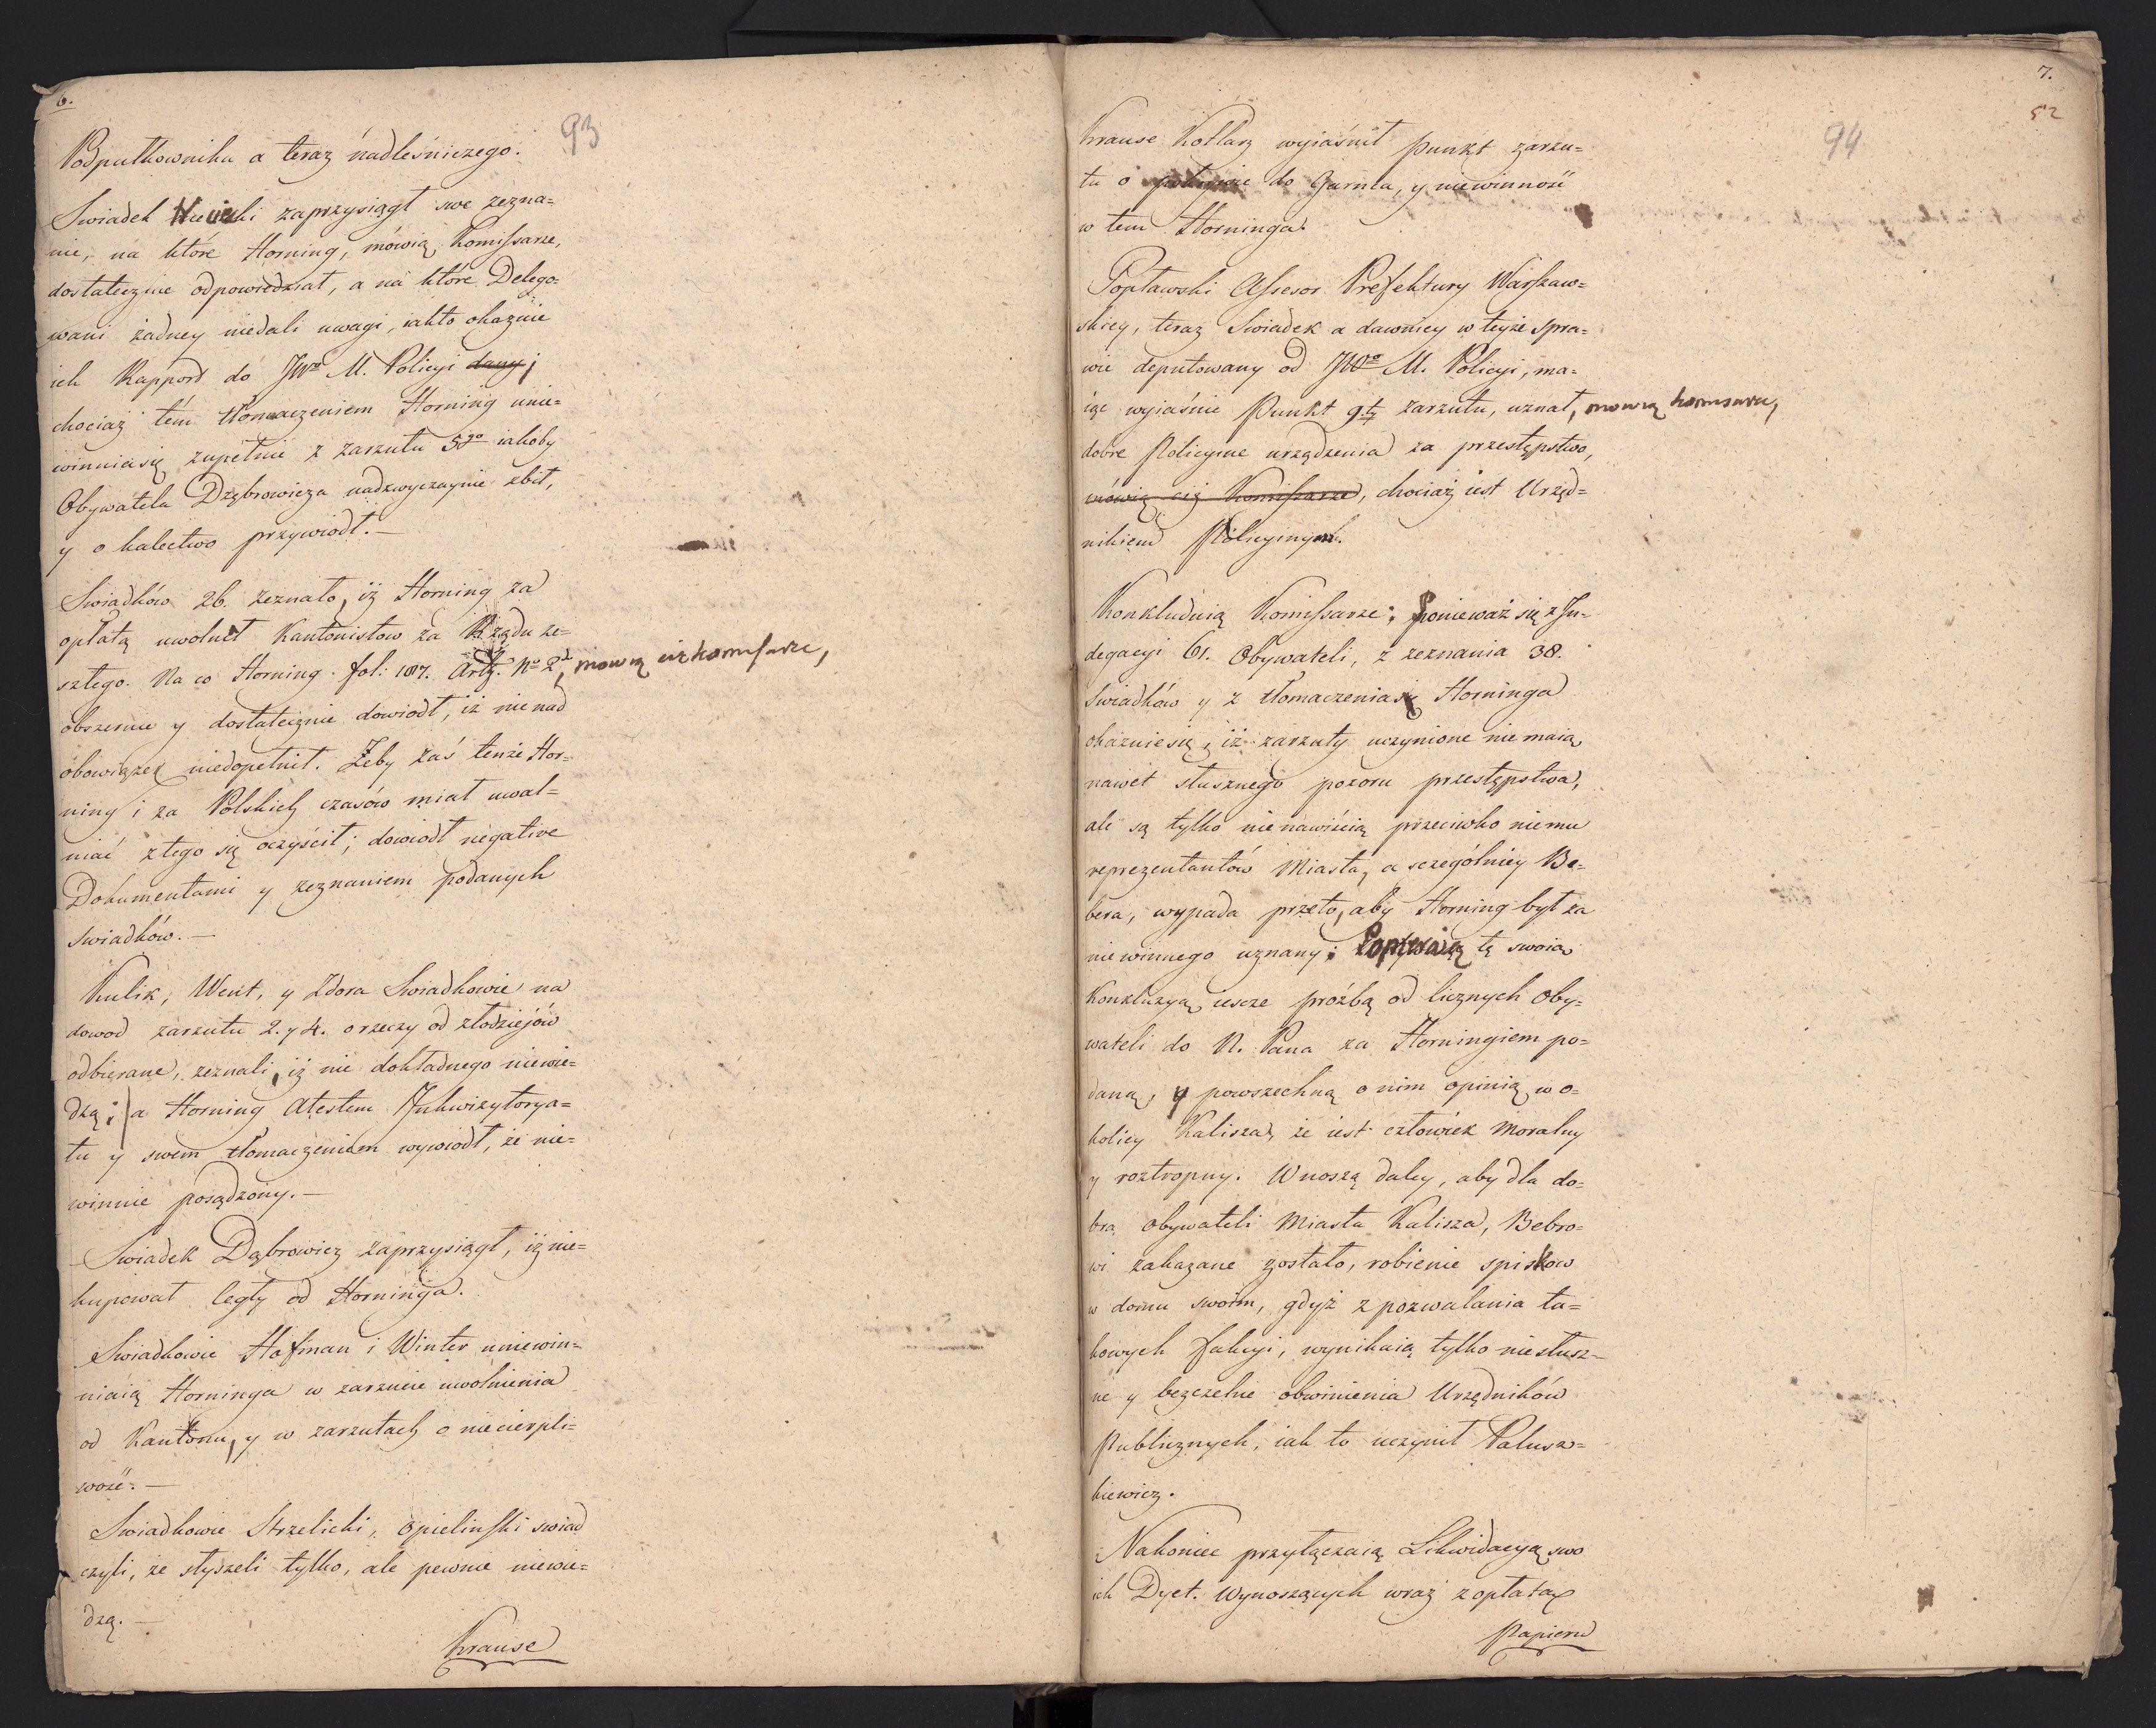 6.
93
Podpułkownika a teraz nadleśniczego.
Swiadek zaprzysiągł swe zezna=
nie, na które Horning, mówią Komissarze,
dostatecznie odpowiedział, a na które Delego=
wani żadney niedali uwagi, iakto okazuie
ich Rapport do JWo M. Policyi dany;
chociaż tém tłomaczeniem Horning unie=
winnia się zupełnie z zarzutu 5go iakoby
Obywatela Dząbrowicza nadzwyczaynie zbił,
y o kalectwo przywiodł.—
Swiadków 26. zeznało, iż Horning za
opłatą uwolnił Kantonistow za Rządu ze=
szłego. Na co Horning fol: 187. No 2d, mowią ciż komissarze,
obszernie y dostatecznie dowiodł, iż nie nad
obowiązek niedopełnił. Żeby zaś tenże Hor=
ning i za Polskich czasów miał uwal=
niać z tego się oczyścił; dowiodł negative
Dokumentami y zeznaniem podanych
swiadków.—
Kulik, Went, y Zdora Swiadkowie na
dowod zarzutu 2. y 4. o rzeczy od złodziejów
odbierane, zeznali, iż nic dokładnego niewie=
dzą; a Horning Atestem Inkwizytorya=
tu y swem tłomaczeniem wywiodł, że nie=
winnie posądzony.—
Swiadek Dąbrowicz zaprzysiągł, iż nie=
kupował cegły od Horninga.
Swiadkowie Hofman i Winter uniewin=
niaią Horninga w zarzucie uwolnienia
od Kantonu, y w zarzutach o niecierpli=
wość.—
Swiadkowie Strzelicki, Opielinski swiad
czyli, że słyszeli tylko, ale pewnie niewie=
dzą.—
Krause
7.
52
94
Krause Kotlarz wyiaśnił punkt zarzu=
tu o do Garnca, y niewinność
w tem Horninga.
Popławski Assessor Prefektury Warszaw=
skiey, teraz Swiadek a dawniey w teyże spra=
wie deputowany od JWo M. Policyi, ma=
iąc wyiaśnić Punkt 9ty zarzutu, uznał, mowią komissarze,
dobre Policyine urządzenia za przestępstwo,
mówią ciż Komissarze, chociaż iest Urzęd=
nikiem Policyinym.
Konkluduią Komissarze; ponieważ się z In=
degacyi 61. Obywateli, z zeznania 38.
Swiadków y z tłomaczenia się Horninga
okazuie się, iż zarzuty uczynione nie maią
nawet słusznego pozoru przestępstwa,
ale są tylko nienawiścią przeciwko niemu
reprezentantów Miasta, a szczególniey Be=
bera, wypada przeto, aby Horning był za
niewinnego uznany; Popieraią tę swoią
Konkluzyą iescze prożbą od licznych Oby=
wateli do N. Pana za Horningiem po=
daną, y powszechną o nim opinią w o=
kolicy Kalisza, że iest człowiek moralny
y roztropny. Wnoszą daley, aby dla do=
bra Obywateli Miasta Kalisza, Bebro=
wi zakazane zostało, robienie spisków
w domu swoim, gdyż z pozwalania ta=
kowych fakcyi, wynikaią tylko niesłusz=
ne y bezczelne obwinienia Urzędników
Publicznych, iak to uczynił Palusz=
kiewicz.
Nakoniec przyłączaią Likwidacyą swo
ich Dyet. Wynoszących wraz z opłatą
Papieru